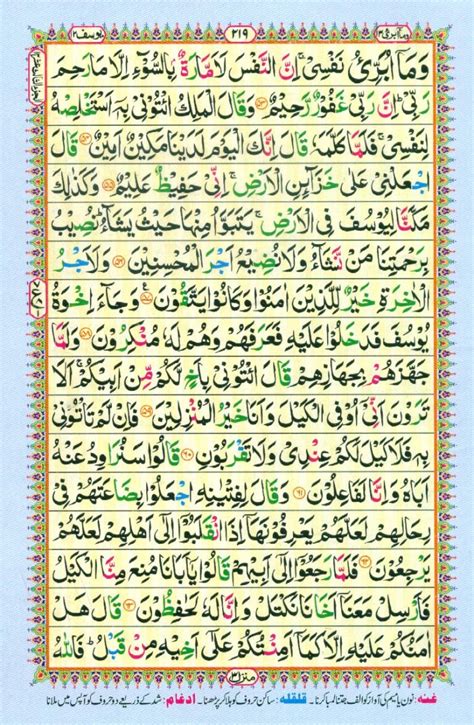 یوسف ۱۲
۲۱۹
وما ابرئ ۱۳
وَمَاۤ اُبَرِّئُ نَفۡسِىۡ‌ۚ اِنَّ النَّفۡسَ لَاَمَّارَةٌۢ بِالسُّوۡٓءِ اِلَّا مَا رَحِمَ
رَبِّىۡ ؕ اِنَّ رَبِّىۡ غَفُوۡرٌ رَّحِيۡمٌ ﴿۵۳﴾ وَقَالَ الۡمَلِكُ ائۡتُوۡنِىۡ بِهٖۤ اَسۡتَخۡلِصۡهُ
لِنَفۡسِىۡ‌ۚ فَلَمَّا كَلَّمَهٗ قَالَ اِنَّكَ الۡيَوۡمَ لَدَيۡنَا مَكِيۡنٌ اَمِيۡنٌ ﴿۵۴﴾ قَالَ
اجۡعَلۡنِىۡ عَلٰى خَزَآٮِٕنِ الۡاَرۡضِ‌ۚ اِنِّىۡ حَفِيۡظٌ عَلِيۡمٌ ﴿۵۵﴾ وَكَذٰلِكَ
مَكَّنَّا لِيُوۡسُفَ فِى الۡاَرۡضِ‌ۚ يَتَبَوَّاُ مِنۡهَا حَيۡثُ يَشَآءُ‌ؕ نُصِيۡبُ
بِرَحۡمَتِنَا مَنۡ نَّشَآءُ وَلَا نُضِيۡعُ اَجۡرَ الۡمُحۡسِنِيۡنَ ﴿۵۶﴾ وَلَاَجۡرُ
الۡاٰخِرَةِ خَيۡرٌ لِّلَّذِيۡنَ اٰمَنُوۡا وَكَانُوۡا يَتَّقُوۡنَ ﴿۵۷﴾ وَجَآءَ اِخۡوَةُ
يُوۡسُفَ فَدَخَلُوۡا عَلَيۡهِ فَعَرَفَهُمۡ وَهُمۡ لَهٗ مُنۡكِرُوۡنَ ﴿۵۸﴾ وَلَمَّا
جَهَّزَهُمۡ بِجَهَازِهِمۡ قَالَ ائۡتُوۡنِىۡ بِاَخٍ لَّكُمۡ مِّنۡ اَبِيۡكُمۡ‌ۚ اَلَا
تَرَوۡنَ اَنِّىۡۤ اُوۡفِى الۡكَيۡلَ وَاَنَا خَيۡرُ الۡمُنۡزِلِيۡنَ ﴿۵۹﴾ فَاِنۡ لَّمۡ تَاۡتُوۡنِىۡ
بِهٖ فَلَا كَيۡلَ لَـكُمۡ عِنۡدِىۡ وَلَا تَقۡرَبُوۡنِ ﴿۶۰﴾ قَالُوۡا سَنُرَاوِدُ عَنۡهُ
اَبَاهُ وَاِنَّا لَفٰعِلُوۡنَ ﴿۶۱﴾ وَقَالَ لِفِتۡيٰنِهِ اجۡعَلُوۡا بِضَاعَتَهُمۡ فِىۡ
رِحَالِهِمۡ لَعَلَّهُمۡ يَعۡرِفُوۡنَهَاۤ اِذَا انْقَلَبُوۡۤا اِلٰٓى اَهۡلِهِمۡ لَعَلَّهُمۡ
يَرۡجِعُوۡنَ ﴿۶۲﴾ فَلَمَّا رَجَعُوۡۤا اِلٰٓى اَبِيۡهِمۡ قَالُوۡا يٰۤاَبَانَا مُنِعَ مِنَّا الۡكَيۡلُ
فَاَرۡسِلۡ مَعَنَاۤ اَخَانَا نَكۡتَلۡ وَاِنَّا لَهٗ لَحٰفِظُوۡنَ ﴿۶۳﴾ قَالَ هَلۡ
اٰمَنُكُمۡ عَلَيۡهِ اِلَّا كَمَاۤ اَمِنۡتُكُمۡ عَلٰٓى اَخِيۡهِ مِنۡ قَبۡلُ‌ؕ فَاللّٰهُ
منزل ۳
غنہ: نون یا میم کی آواز کو الف جتنا لمبا کرنا۔ قلقلہ: ساکن حروف کو ہلا کر پڑھنا۔ ادغام: شد کے ذریعے دو حروف کو آپس میں ملانا